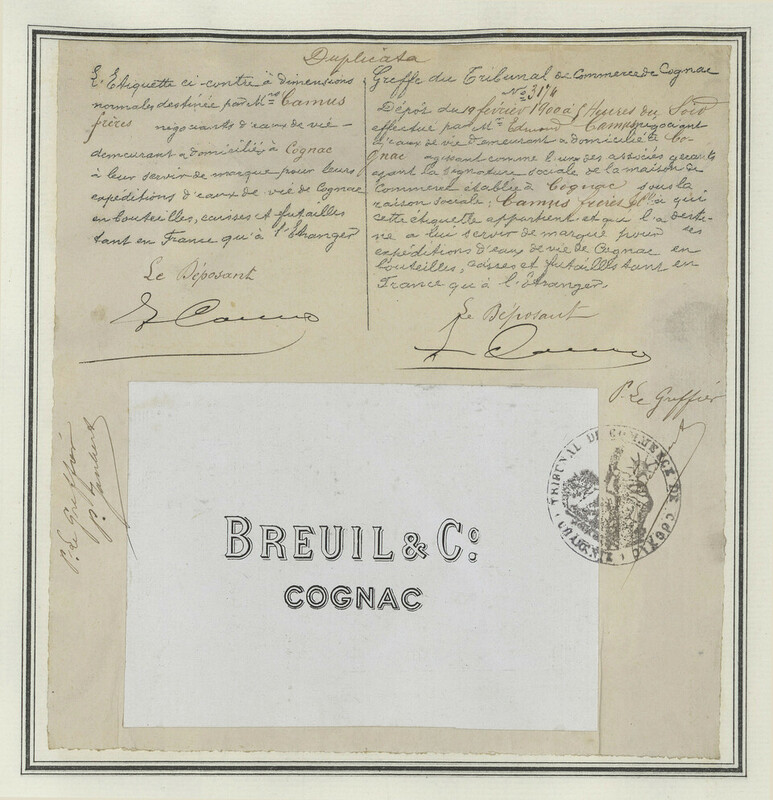 Duplicata
L'Etiquette ci-contre à dimensions
normales destinée par Mrs Camus
frères négociants d'eaux de vie
demeurant & domiciliés à Cognac
à leur servir de marque pour leurs
expéditions d'eaux de vie de Cognac
en bouteilles, caisses et futailles
tant en France qu'à l'Etranger
Le Déposant
E Camus
Greffe du Tribunal de Commerce de Cognac
No 3174
Dépôt du 19 février 1900 à 5 Heures du Soir
effectué par Mr Edmond Camus négociant
d'eaux de vie demeurant & domicilié à Co-
gnac agissant comme l'un des associés gérants
ayant la signature sociale de la maison de
Commerce établie à Cognac sous la
raison sociale: Camus frères & Cie à qui
cette étiquette appartient et qui l'a desti-
né à lui servir de marque pour ses
expéditions d'eaux de vie de Cognac en
bouteilles, caisses et futailles tant en
France qu'à l'Etranger
Le Déposant
E Camus
P. Le Greffier
P. Le Greffier
BREUIL & Co
COGNAC
TRIBUNAL DE COMMERCE DE COGNAC